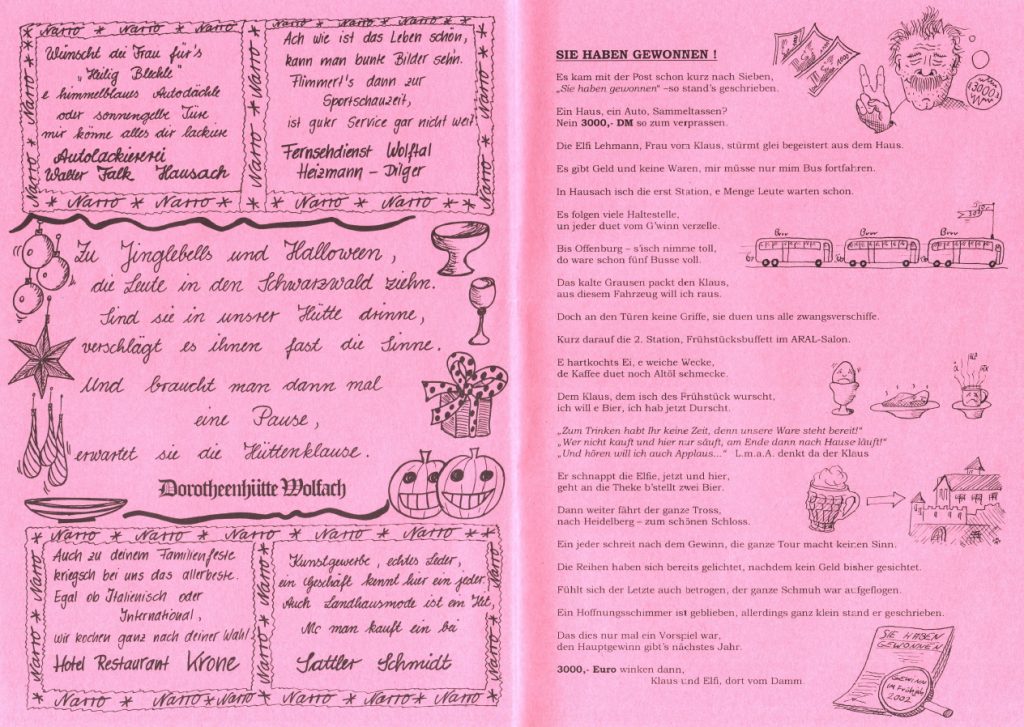 * Narro * Narro * Narro *
Wünscht dei Frau für's
„Heilig Blechle"
e himmelblaues Autodächle
oder sonnengelbe Türe
mir könne alles dir lackiere
Autolackiererei
Walter Falk Hausach
Narro * Narro * Narro *
Ach wie ist das Leben schön,
kann man bunte Bilder sehn.
Flimmert's dann zur
Sportschauzeit,
ist guter Service gar nicht weit
Fernsehdienst Wolftal
Heizmann – Dilger
* Narro * Narro * Narro *
Zu Jinglebells und Halloween,
die Leute in den Schwarzwald ziehn.
Sind sie in unsrer Hütte drinne,
verschlägt es ihnen fast die Sinne.
Und braucht man dann mal
eine Pause,
erwartet sie die Hüttenklause.
Dorotheenhütte Wolfach
* Narro * Narro * Narro *
Auch zu deinem Familienfeste
kriegsch bei uns das allerbeste.
Egal ob Italienisch oder
International,
wir kochen ganz nach deiner Wahl
Hotel Restaurant Krone
Kunstgewerbe, echtes Leder,
ein Geschäft kennt hier ein jeder.
Auch Landhausmode ist ein Hit,
Mc man kauft ein bei
Sattler Schmidt
* Narro * Narro * Narro *
SIE HABEN GEWONNEN !
Es kam mit der Post schon kurz nach Sieben,
„Sie haben gewonnen" –so stand's geschrieben.
Ein Haus, ein Auto, Sammeltassen?
Nein 3000,- DM so zum verprassen.
Die Elfi Lehmann, Frau vom Klaus, stürmt glei begeistert aus dem Haus.
Es gibt Geld und keine Waren, mir müsse nur mim Bus fortfahren.
In Hausach isch die erst Station, e Menge Leute warten schon.
Es folgen viele Haltestelle,
un jeder duet vom G'winn verzelle.
Bis Offenburg – s'isch nimme toll,
do ware schon fünf Busse voll.
Brrr Brrr
Das kalte Grausen packt den Klaus,
aus diesem Fahrzeug will ich raus.
Doch an den Türen keine Griffe, sie duen uns alle zwangsverschiffe.
Kurz darauf die 2. Station, Frühstücksbuffett im ARAL-Salon.
E hartkochts Ei, e weiche Wecke,
de Kaffee duet noch Altöl schmecke.
Dem Klaus, dem isch des Frühstück wurscht,
ich will e Bier, ich hab jetzt Durscht.
„Zum Trinken habt Ihr keine Zeit, denn unsere Ware steht bereit!"
„Wer nicht kauft und hier nur säuft, am Ende dann nach Hause läuft!"
„Und hören will ich auch Applaus..." L.m.a.A. denkt da der Klaus
Er schnappt die Elfie, jetzt und hier,
geht an die Theke b'stellt zwei Bier.
Dann weiter fährt der ganze Tross,
nach Heidelberg – zum schönen Schloss.
Ein jeder schreit nach dem Gewinn, die ganze Tour macht keinen Sinn.
Die Reihen haben sich bereits gelichtet, nachdem kein Geld bisher gesichtet.
Fühlt sich der Letzte auch betrogen, der ganze Schmuh war aufgeflogen.
Ein Hoffnungsschimmer ist geblieben, allerdings ganz klein stand er geschrieben.
Das dies nur mal ein Vorspiel war,
den Hauptgewinn gibt's nächstes Jahr.
3000,- Euro winken dann,
Klaus und Elfi, dort vom Damm.
SIE HABEN
GEWONNEN
GEWINN
im Frühjahr
2002